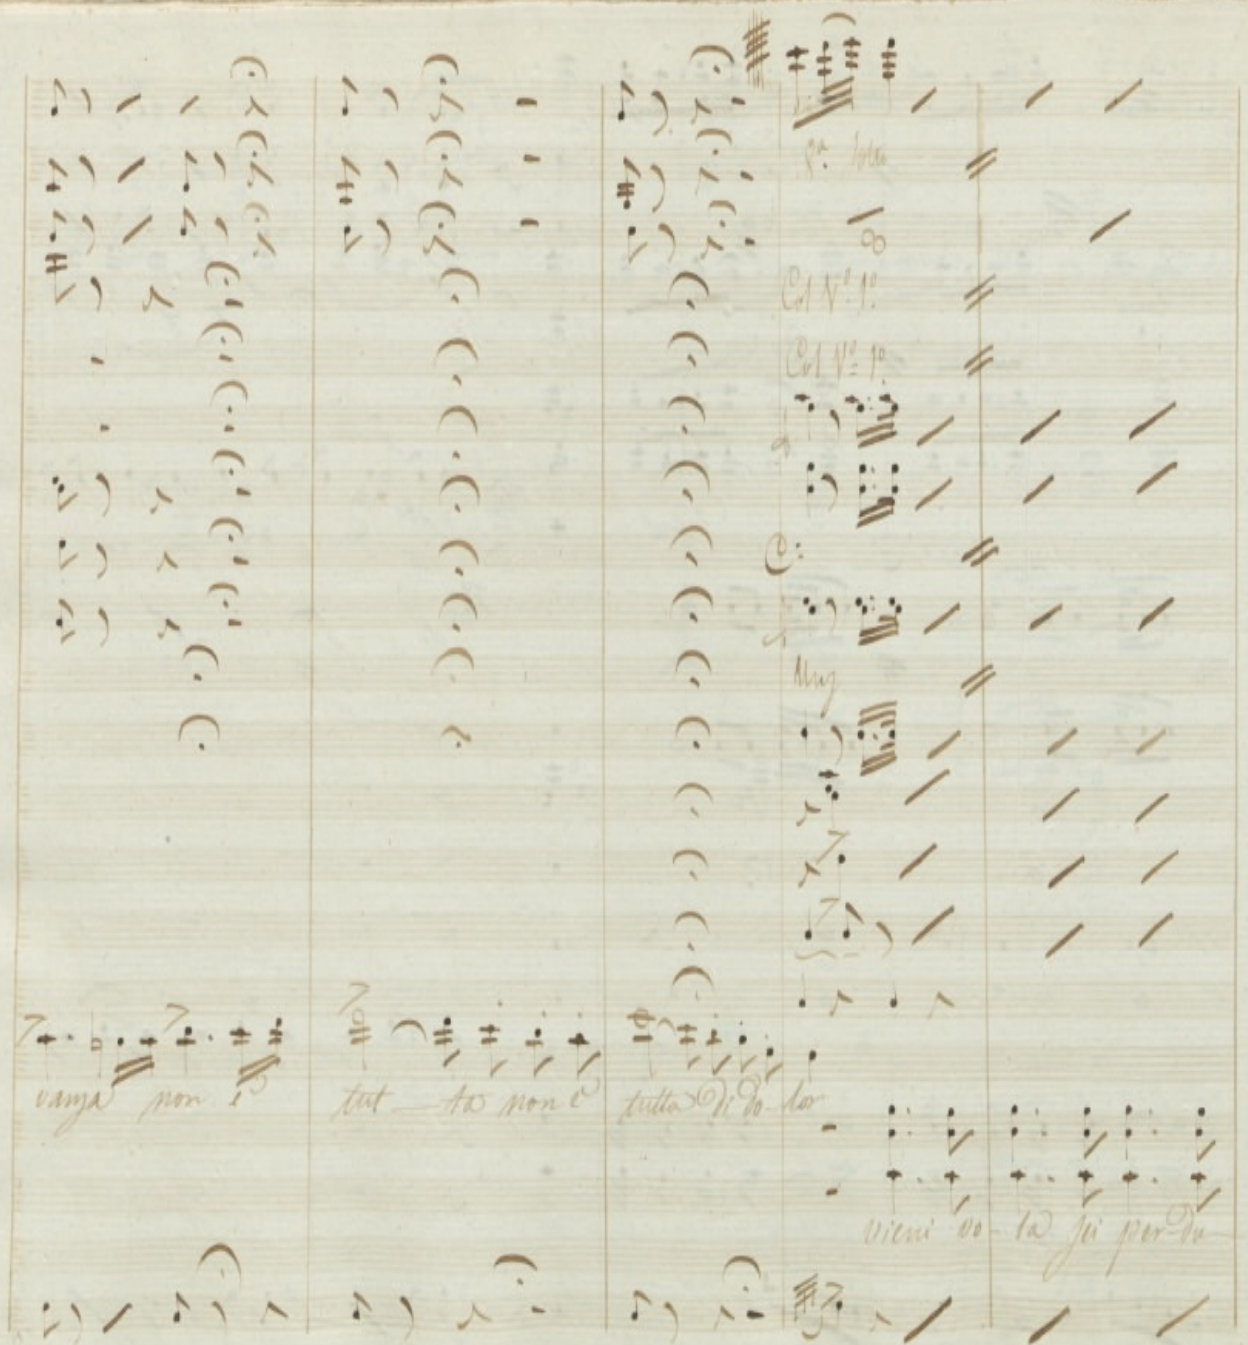 8ª
Col Vº 1º
Col Vº 1º
vanza non è tut - ta non è tutta di do - lor
vieni vo - la sei per - du -